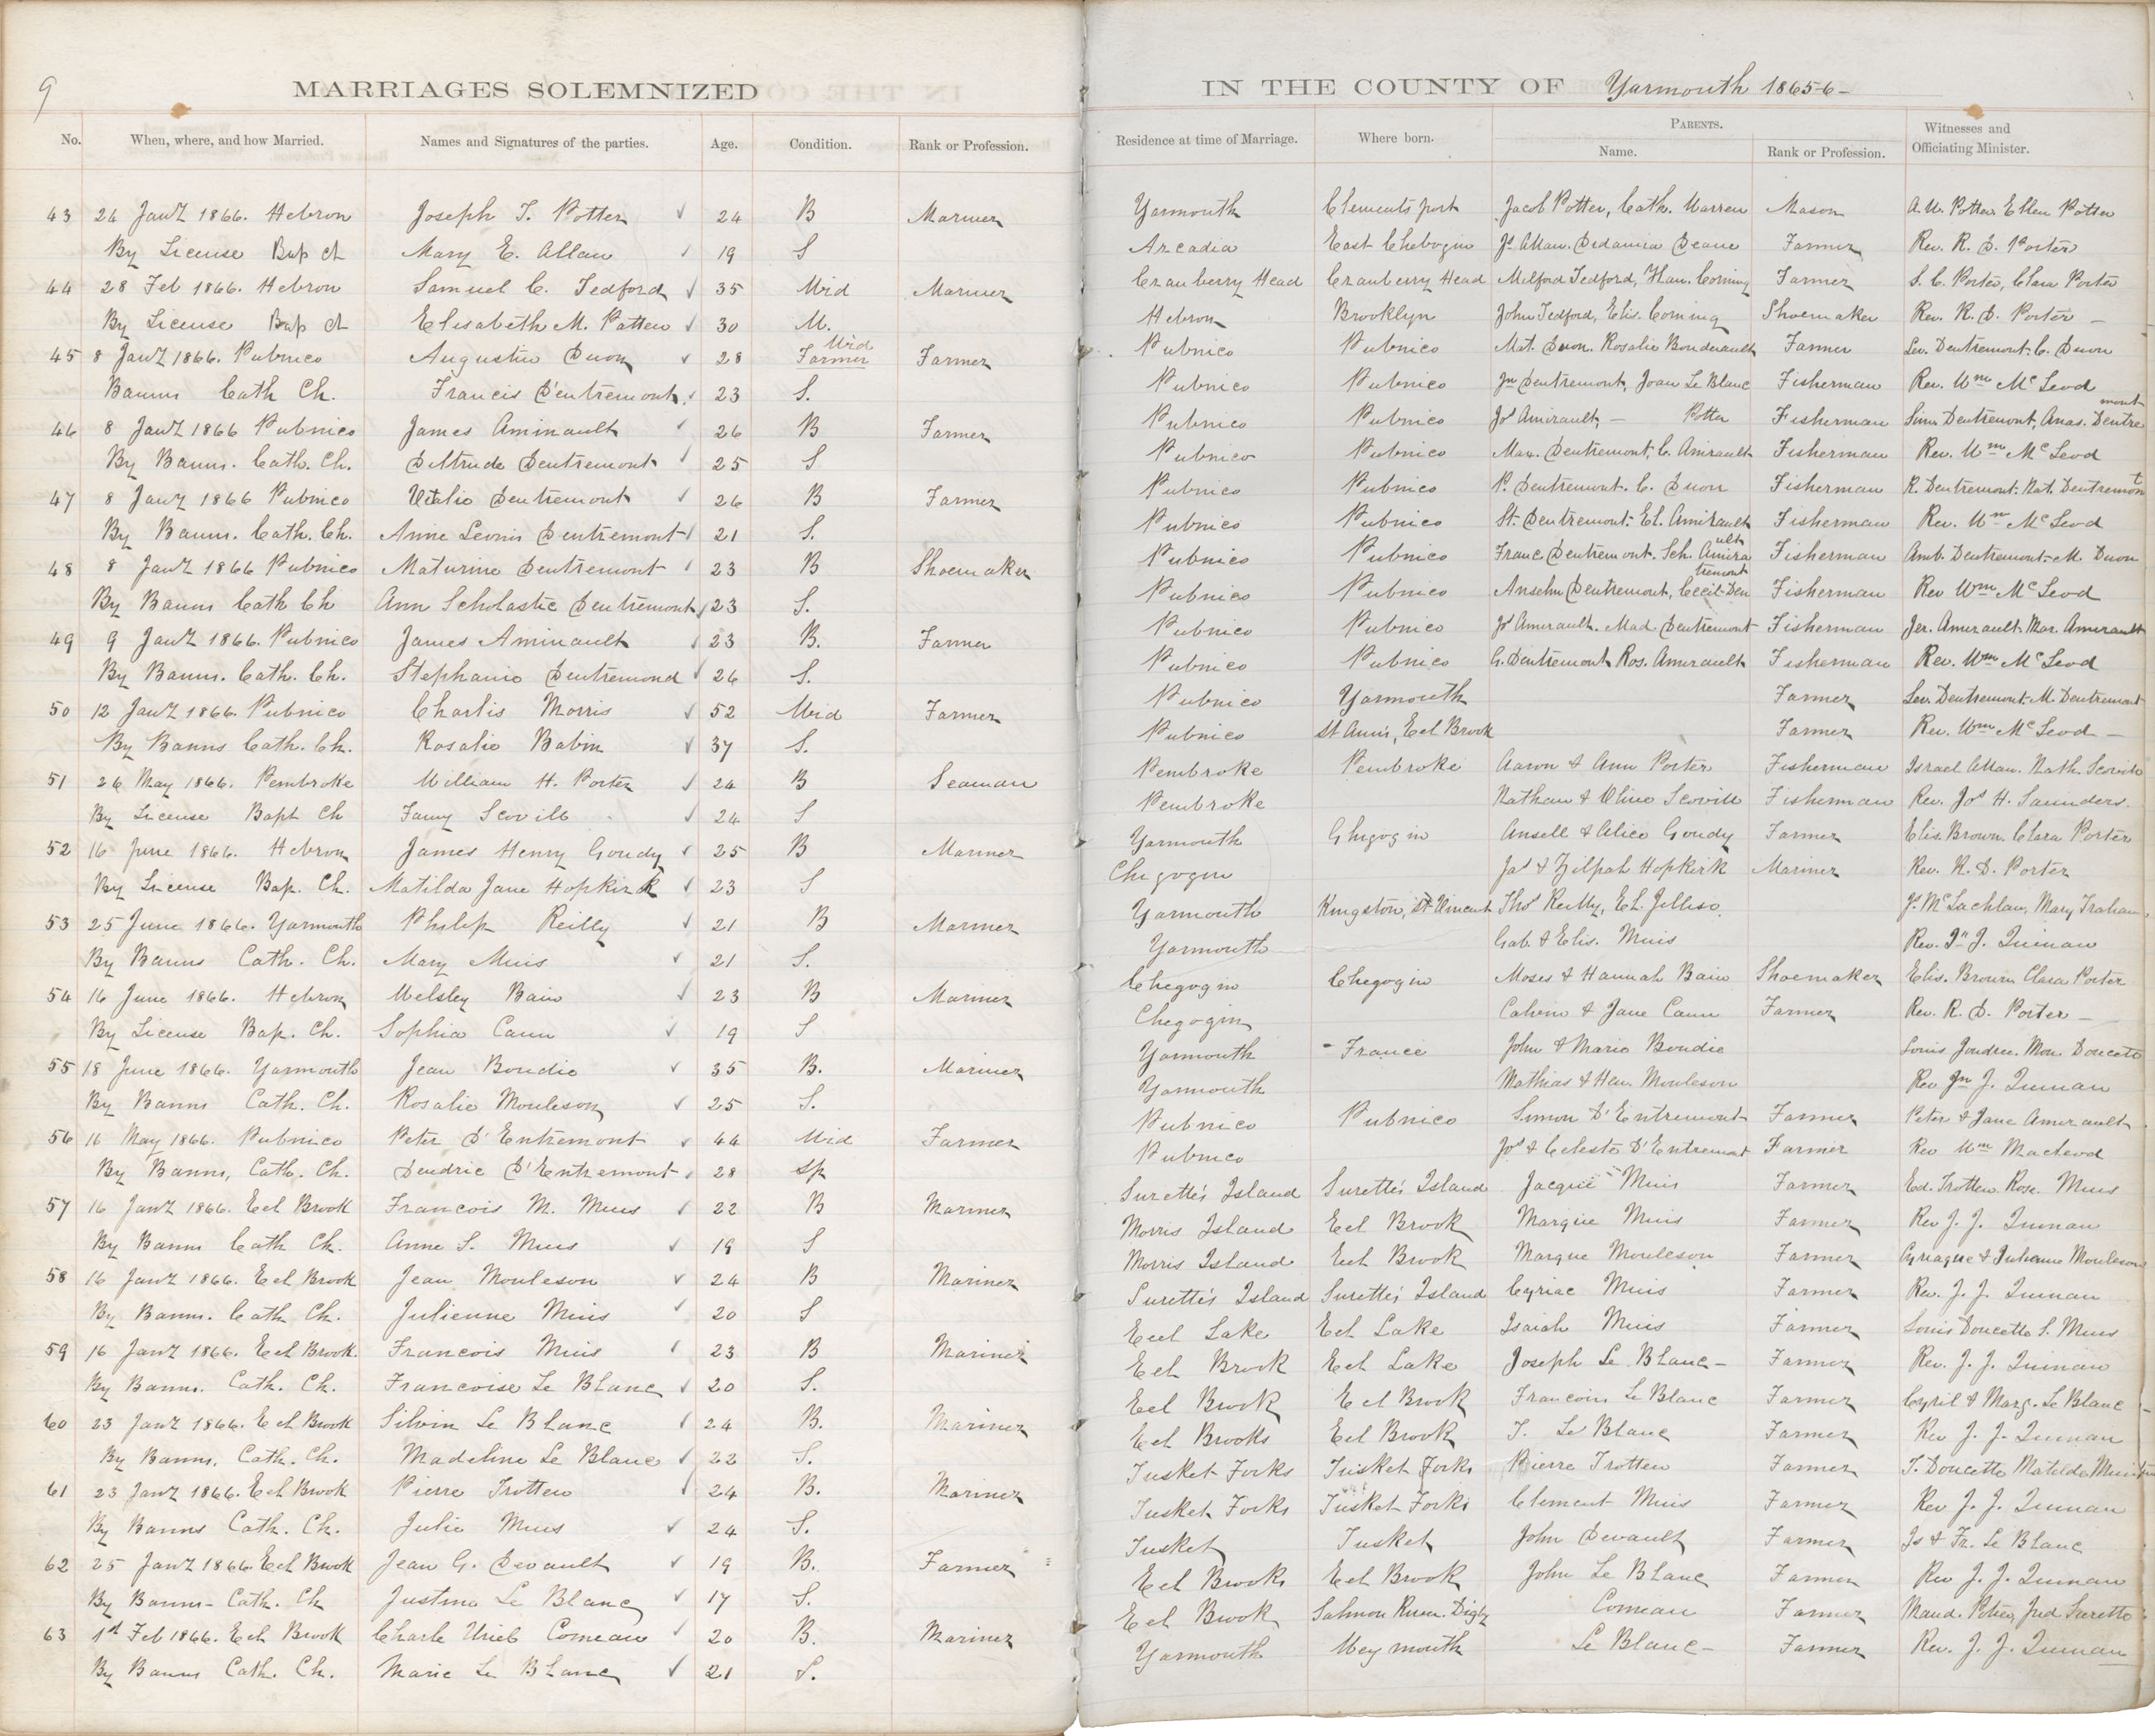 9
MARRIAGES SOLEMNIZED IN THE COUNTY OF Yarmouth 1865-6-
No. When, where, and how Married. Names and Signatures of the parties. Age. Condition. Rank or Profession. Residence at time of Marriage. Where born. PARENTS. Name. Rank or Profession. Witnesses and Officiating Minister.
43 24 Jany 1866. Hebron Joseph T. Potter 24 B Mariner Yarmouth Clementsport Jacob Potter, Cath. Warren Mason A. W. Potter. Ellen Potter
By License Bap ch Mary E. Allan 19 S Arcadia East Chebogin Js Allan. Dedamia Deane Farmer Rev. R. D. Porter
44 28 Feb 1866. Hebron Samuel C. Tedford 35 Wid Mariner Cranberry Head Cranberry Head Milford Tedford, Han. Corning Farmer S. C. Porter, Clara Porter
By License Bap ch Elisabeth M. Patten 30 W. Hebron Brooklyn John Tedford, Elis. Corning Shoemaker Rev. R. D. Porter -
45 8 Jany 1866. Pubnico Augustin Duon 28 Wid Farmer Farmer Pubnico Pubnico Mat. Duon. Rosalie Bonderault Farmer Lev. Dentremont. C. Duon
Banns Cath Ch. Francis D'entremont 23 S. Pubnico Pubnico Jn Dentremont, Joan Le Blanc Fisherman Rev. Wm McLeod
46 8 Jany 1866 Pubnico James Aminault 26 B Farmer Pubnico Pubnico Js Amirault, - Potter Fisherman Sim. Dentremont, Anas. Dentremont
By Banns. Cath. Ch. Deltrude Dentremont 25 S Pubnico Pubnico Mar. Dentremont, C. Amirault Fisherman Rev. Wm McLeod
47 8 Jany 1866 Pubnico Vitalie Dentremont 26 B Farmer Pubnico Pubnico P. Dentremont. C. Duon Fisherman R. Dentremont. Nat. Dentremont
By Banns. Cath. Ch. Anne Leonis Dentremont 21 S. Pubnico Pubnico St. Dentremont. El. Amirault Fisherman Rev. Wm McLeod
48 8 Jany 1866 Pubnico Maturine Dentremont 23 B Shoemaker Pubnico Pubnico Franc Dentremont. Sch. Amirault Fisherman Amb. Dentremont. M. Duon
By Banns Cath Ch Ann Scholastie Dentremont 23 S. Pubnico Pubnico Anselm Dentremont, Cecil Dentremont Fisherman Rev Wm McLeod
49 9 Jany 1866. Pubnico James Aminault 23 B. Farmer Pubnico Pubnico Js Amerault. Mad Dentremont Fisherman Jer. Amerault. Mar. Amerault
By Banns. Cath. Ch. Stephanie Dentremond 26 S. Pubnico Pubnico G. Dentremont Ros. Amerault Fisherman Rev. Wm McLeod
50 12 Jany 1866. Pubnico Charlis Morris 52 Wid Farmer Pubnico Yarmouth Farmer Lev. Dentremont. M. Dentremont
By Banns Cath. Ch. Rosalie Babin 37 S. Pubnico St Ann's, Eel Brook Farmer Rev. Wm McLeod -
51 26 May 1866. Pembroke William H. Porter 24 B Seaman Pembroke Pembroke Aaron & Ann Porter Fisherman Israel Allan. Nath. Scovill
By License Bapt Ch Fanny Scovill 24 S Pembroke Nathan & Olive Scovill Fisherman Rev. Jos H. Saunders.
52 16 June 1866. Hebron James Henry Goudy 25 B Mariner Yarmouth Chegogin Ansell & Alice Goudy Farmer Elis. Brown. Clara Porter
By License Bap. Ch. Matilda Jane Hopkirk 23 S Chegogin Jas & Zilpah Hopkirk Mariner Rev. R. D. Porter
53 25 June 1866. Yarmouth Philip Reilly 21 B Mariner Yarmouth Kingston, St Vincent Thos Reilly, El. Jelliso J. McLachlan, Mary Trahan
By Banns Cath. Ch. Mary Muis 21 S. Yarmouth Gab. & Elis. Muis Rev. Jn J. Quinan
54 16 June 1866. Hebron Welsley Bain 23 B Mariner Chegogin Chegogin Moses & Hannah Bain Shoemaker Elis. Brown Clara Porter
By License Bap. Ch. Sophia Cann 19 S Chegogin Calvin & Jane Cann Farmer Rev. R. D. Porter -
55 18 June 1866. Yarmouth Jean Boudie 35 B. Mariner Yarmouth France John & Marie Boudie Louis Joudree. Mon Doucette
By Banns Cath. Ch. Rosalie Mouleson 25 S. Yarmouth Mathias & Hen. Mouleson Rev Jn J. Quinan
56 16 May 1866. Pubnico Peter D'Entremont 44 Wid Farmer Pubnico Pubnico Simon D'Entremont Farmer Peter & Jane Amerault
By Banns, Cath. Ch. Dendrie D'Entremont 28 Sp Pubnico Jos & Celeste D'Entremont Farmer Rev Wm Macleod
57 16 Jany 1866. Eel Brook Francois M. Muis 22 B Mariner Surette's Island Surette's Island Jacque Muis Farmer Ed. Trotten. Rose. Muis
By Banns Cath Ch. Anne S. Muis 19 S Morris Island Eel Brook Marque Muis Farmer Rev J. J. Quinan
58 16 Jany 1866. Eel Brook Jean Mouleson 24 B Mariner Morris Island Eel Brook Marque Mouleson Farmer Cyriaque & Julienne Mouleson
By Banns. Cath. Ch. Julienne Muis 20 S Surette's Island Surette's Island Cyriac Muis Farmer Rev. J. J. Quinan
59 16 Jany 1866. Eel Brook. Francois Muis 23 B Mariner Eel Lake Eel Lake Isaiah Muis Farmer Louis Doucette S. Muis
By Banns. Cath. Ch. Francoise Le Blanc 20 S. Eel Brook Eel Lake Joseph Le Blanc - Farmer Rev. J. J. Quinan
60 23 Jany 1866. Eel Brook Silvin Le Blanc 24 B. Mariner Eel Brook Eel Brook Francois Le Blanc Farmer Cyril & Marg. Le Blanc
By Banns. Cath. Ch. Madeline Le Blanc 22 S. Eel Brooks Eel Brook T. Le Blanc Farmer Rev J. J. Quinan
61 23 Jany 1866. Eel Brook Pierre Trotten 24 B. Mariner Tusket Forks Tusket Forks Pierre Trotten Farmer T. Doucette Matilde Muis
By Banns Cath. Ch. Julie Muis 24 S. Tusket Forks Tusket Forks Clement Muis Farmer Rev J. J. Quinan
62 25 Jany 1866. Eel Brook Jean G. Devault 19 B. Farmer Tusket Tusket John Devault Farmer Js & Fr. Le Blanc
By Banns - Cath. Ch Justina Le Blanc 17 S. Eel Brooks Eel Brook John Le Blanc Farmer Rev J. J. Quinan
63 1st Feb 1866. Eel Brook Charle Urieb Comeau 20 B. Mariner Eel Brook Salmon River. Digby Comeau Farmer Maud. Potier, Jud Surette
By Banns Cath. Ch. Marie Le Blanc 21 S. Yarmouth Weymouth Le Blanc - Farmer Rev. J. J. Quinan